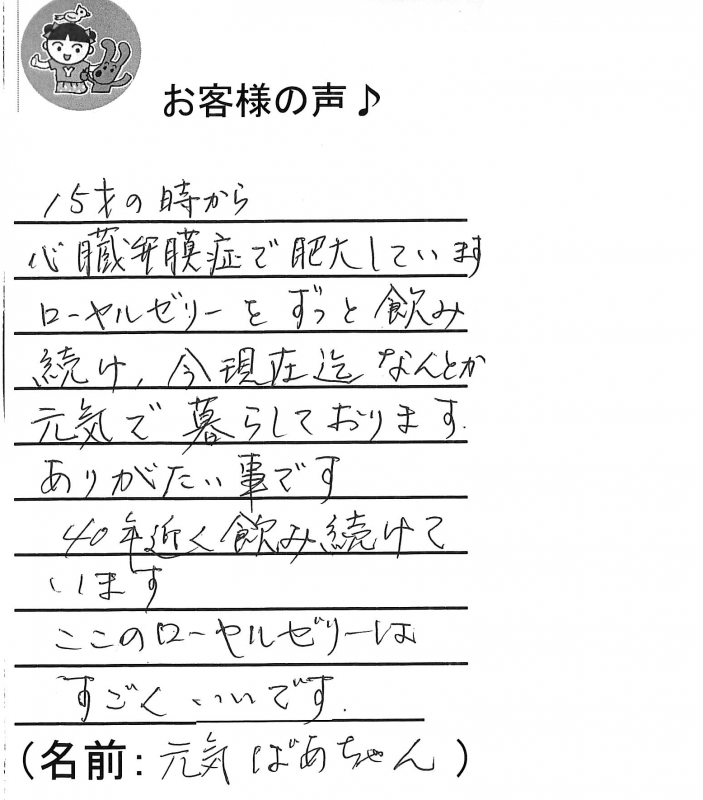 お客様の声♪
15才の時から
心臓弁膜症で肥大しています
ローヤルゼリーをずっと飲み
続け、今現在迄なんとか
元気で暮らしております.
ありがたい事です
40年近く飲み続けて
います
ここのローヤルゼリーは
すごくいいです.
(名前:元気ばあちゃん)